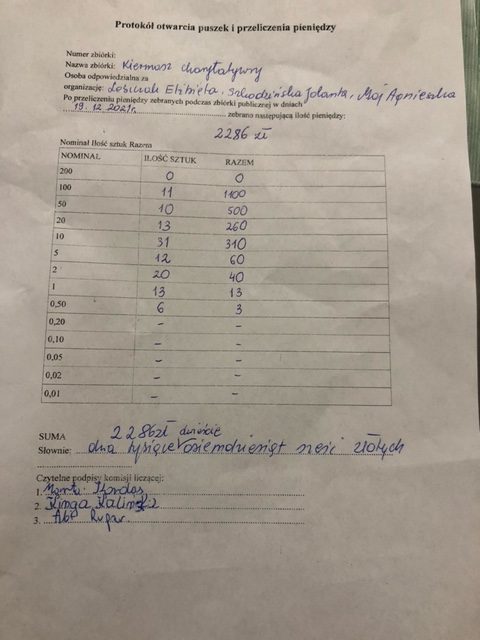 Protokół otwarcia puszek i przeliczenia pieniędzy
Numer zbiórki:
Nazwa zbiórki: Kiermasz charytatywny
Osoba odpowiedzialna za
organizację: Elżbieta, Jolanta, Maj Agnieszka
Po przeliczeniu pieniędzy zebranych podczas zbiórki publicznej w dniach
19.12.2021r. zebrano następującą ilość pieniędzy:
2286 zł
Nominał Ilość sztuk Razem
NOMINAŁ ILOŚĆ SZTUK RAZEM
200 0 0
100 11 1100
50 10 500
20 13 260
10 31 310
5 12 60
2 20 40
1 13 13
0,50 6 3
0,20 – –
0,10 – –
0,05 – –
0,02 – –
0,01 – –
SUMA 2286zł
Słownie: dwa tysiące dwieście osiemdziesiąt sześć złotych
Czytelne podpisy komisji liczącej:
1. Marta
2. Kinga
3.